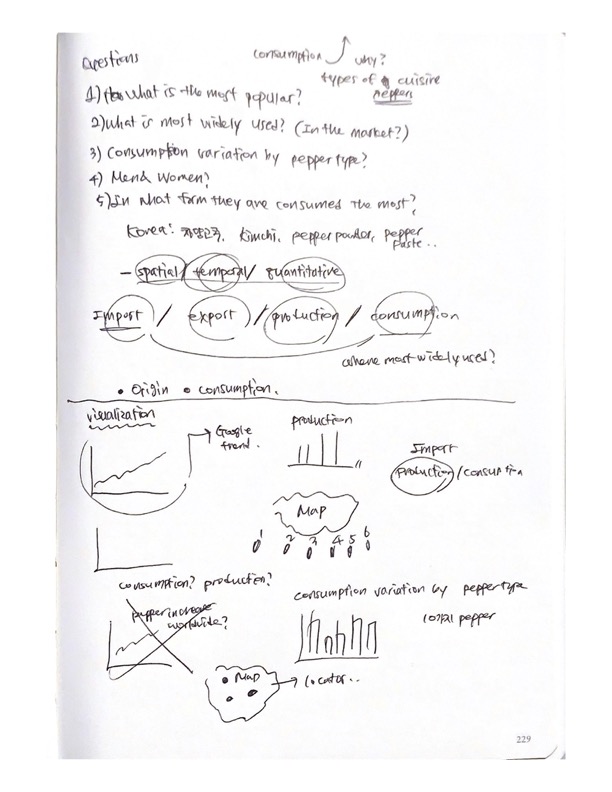 Questions
consumption why?
types of cuisine
peppers
1) What is the most popular?
2) What is most widely used? (In the market?)
3) Consumption variation by pepper type?
4) Men & Women?
5) In what form they are consumed the most?
Korea: Kimchi, pepper powder, pepper
paste..
- spatial / temporal / quantitative
Import / export / production / consumption
where most widely used?
• Origin • consumption.
visualization
Google
trend.
production
Import
production / consumption
Map
1 2 3 4 5 6
consumption? production?
pepper increase
worldwide?
consumption variation by pepper type
10가지 pepper
Map
locator..
229